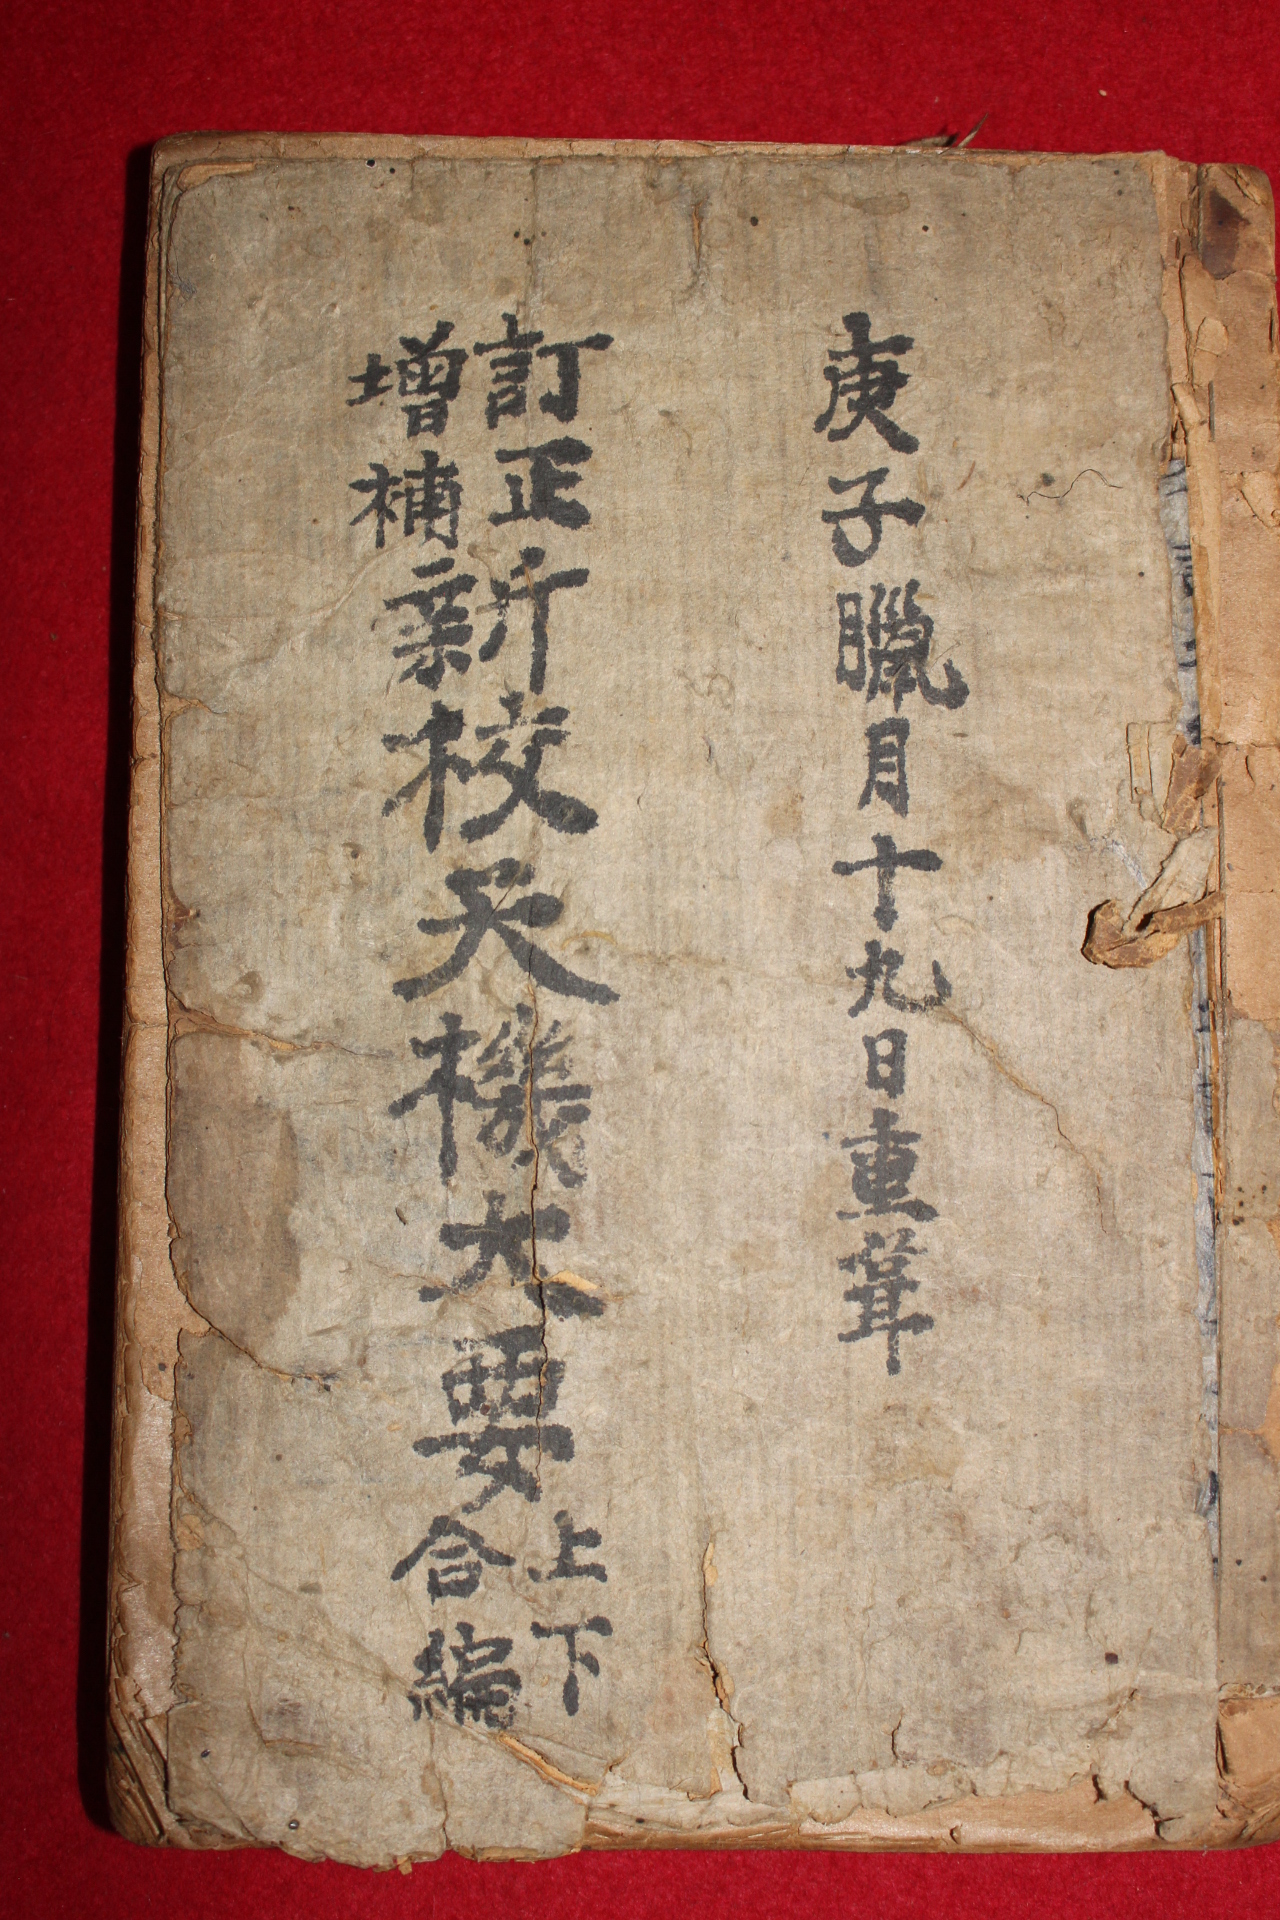 庚子臘月十九日重葺
訂正
增補
新校天機大要
上下
合編